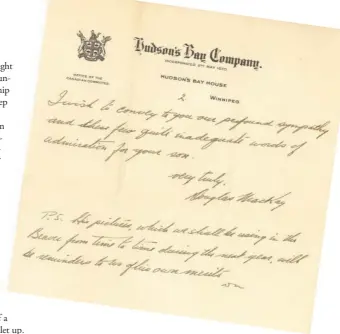 ght
an-
hip
ep
n
Hudson's Bay Company.
INCORPORATED 2ND MAY 1670
OFFICE OF THE
CANADIAN COMMITTEE
HUDSON'S BAY HOUSE
2
WINNIPEG
I wish to convey to you our profound sympathy
and these few quite inadequate words of
admiration for your son.
Very truly,
Douglas MacKay
P.S. His pictures, which we shall be using in the
Beaver from time to time during the next year, will
be reminders to us of his own merits
f a
let up.